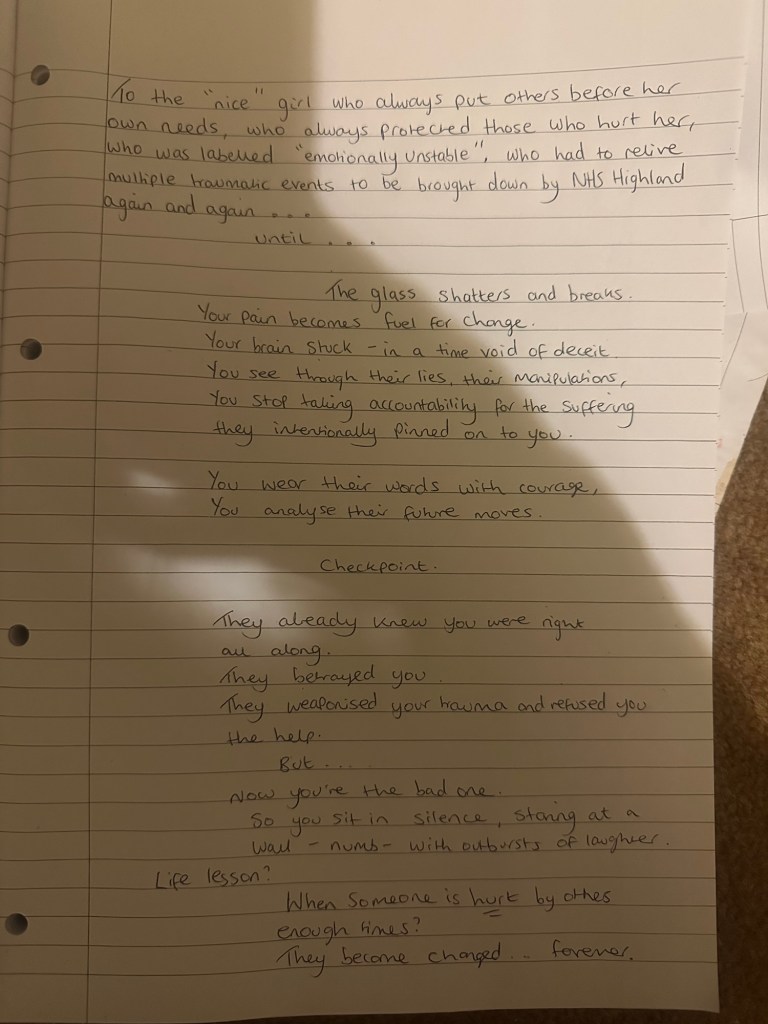 To the "nice" girl who always put others before her
own needs, who always protected those who hurt her,
who was labelled "emotionally unstable", who had to relive
multiple traumatic events to be brought down by NHS Highland
again and again ...
until ...
The glass shatters and breaks.
Your pain becomes fuel for change.
Your brain stuck - in a time void of deceit.
You see through their lies, their manipulations,
You stop taking accountability for the suffering
they intentionally pinned on to you.
You wear their words with courage,
You analyse their future moves.
Checkpoint.
They already knew you were right
all along.
They betrayed you.
They weaponised your trauma and refused you
the help.
But ...
Now you're the bad one.
So you sit in silence, staring at a
wall - numb - with outbursts of laughter.
Life lesson?
When someone is hurt by othes
enough times?
They become changed... forever.